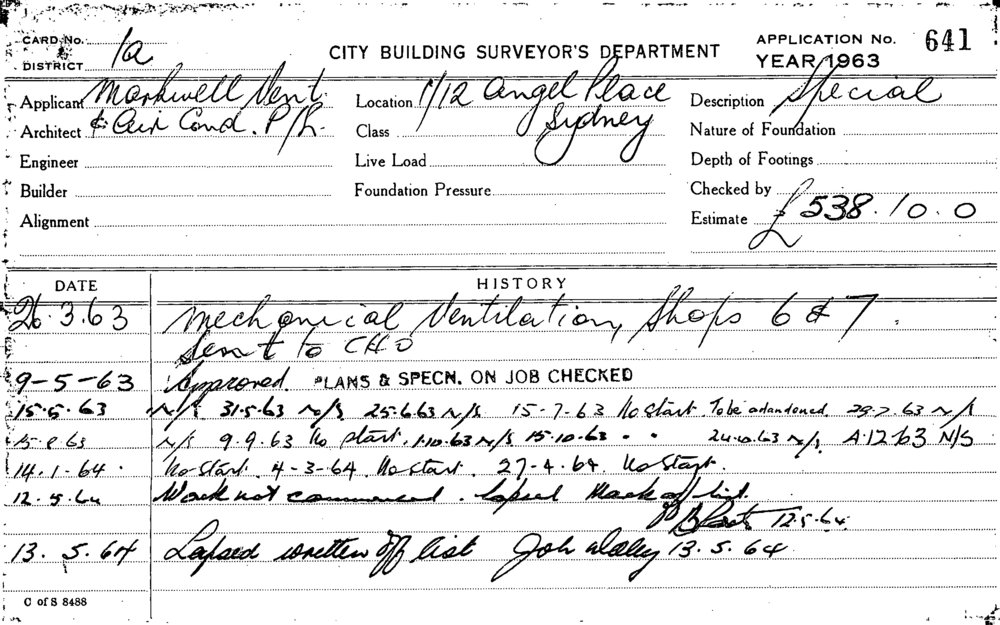 CARD No.
DISTRICT 1a
CITY BUILDING SURVEYOR'S DEPARTMENT
APPLICATION No. 641
YEAR 1963
Applicant Markwell Vent.
Architect & Air Cond. P/L.
Engineer
Builder
Alignment
Location 1/12 Angel Place
Class Sydney
Live Load
Foundation Pressure
Description Special
Nature of Foundation
Depth of Footings
Checked by
Estimate £538.10.0
DATE HISTORY
26.3.63 Mechanical Ventilation, Shops 6 & 7.
Sent to CHO
9-5-63 Approved PLANS & SPECN. ON JOB CHECKED
15.5.63 N/S 31.5.63 N/S 25.6.63 N/S 15-7-63 No Start. To be abandoned. 29.7.63 N/S
15.8.63 N/S 9.9.63 No start. 1.10.63 N/S 15.10.63 " " 24.10.63 N/S. 4.12.63 N/S
14.1.64. No Start. 4-3-64. No start. 27-4.64. No Start.
12.5.64 Work not commenced. Lapsed Mark off list.
12.5.64
13.5.64 Lapsed written off list 13.5.64
C of S 8488